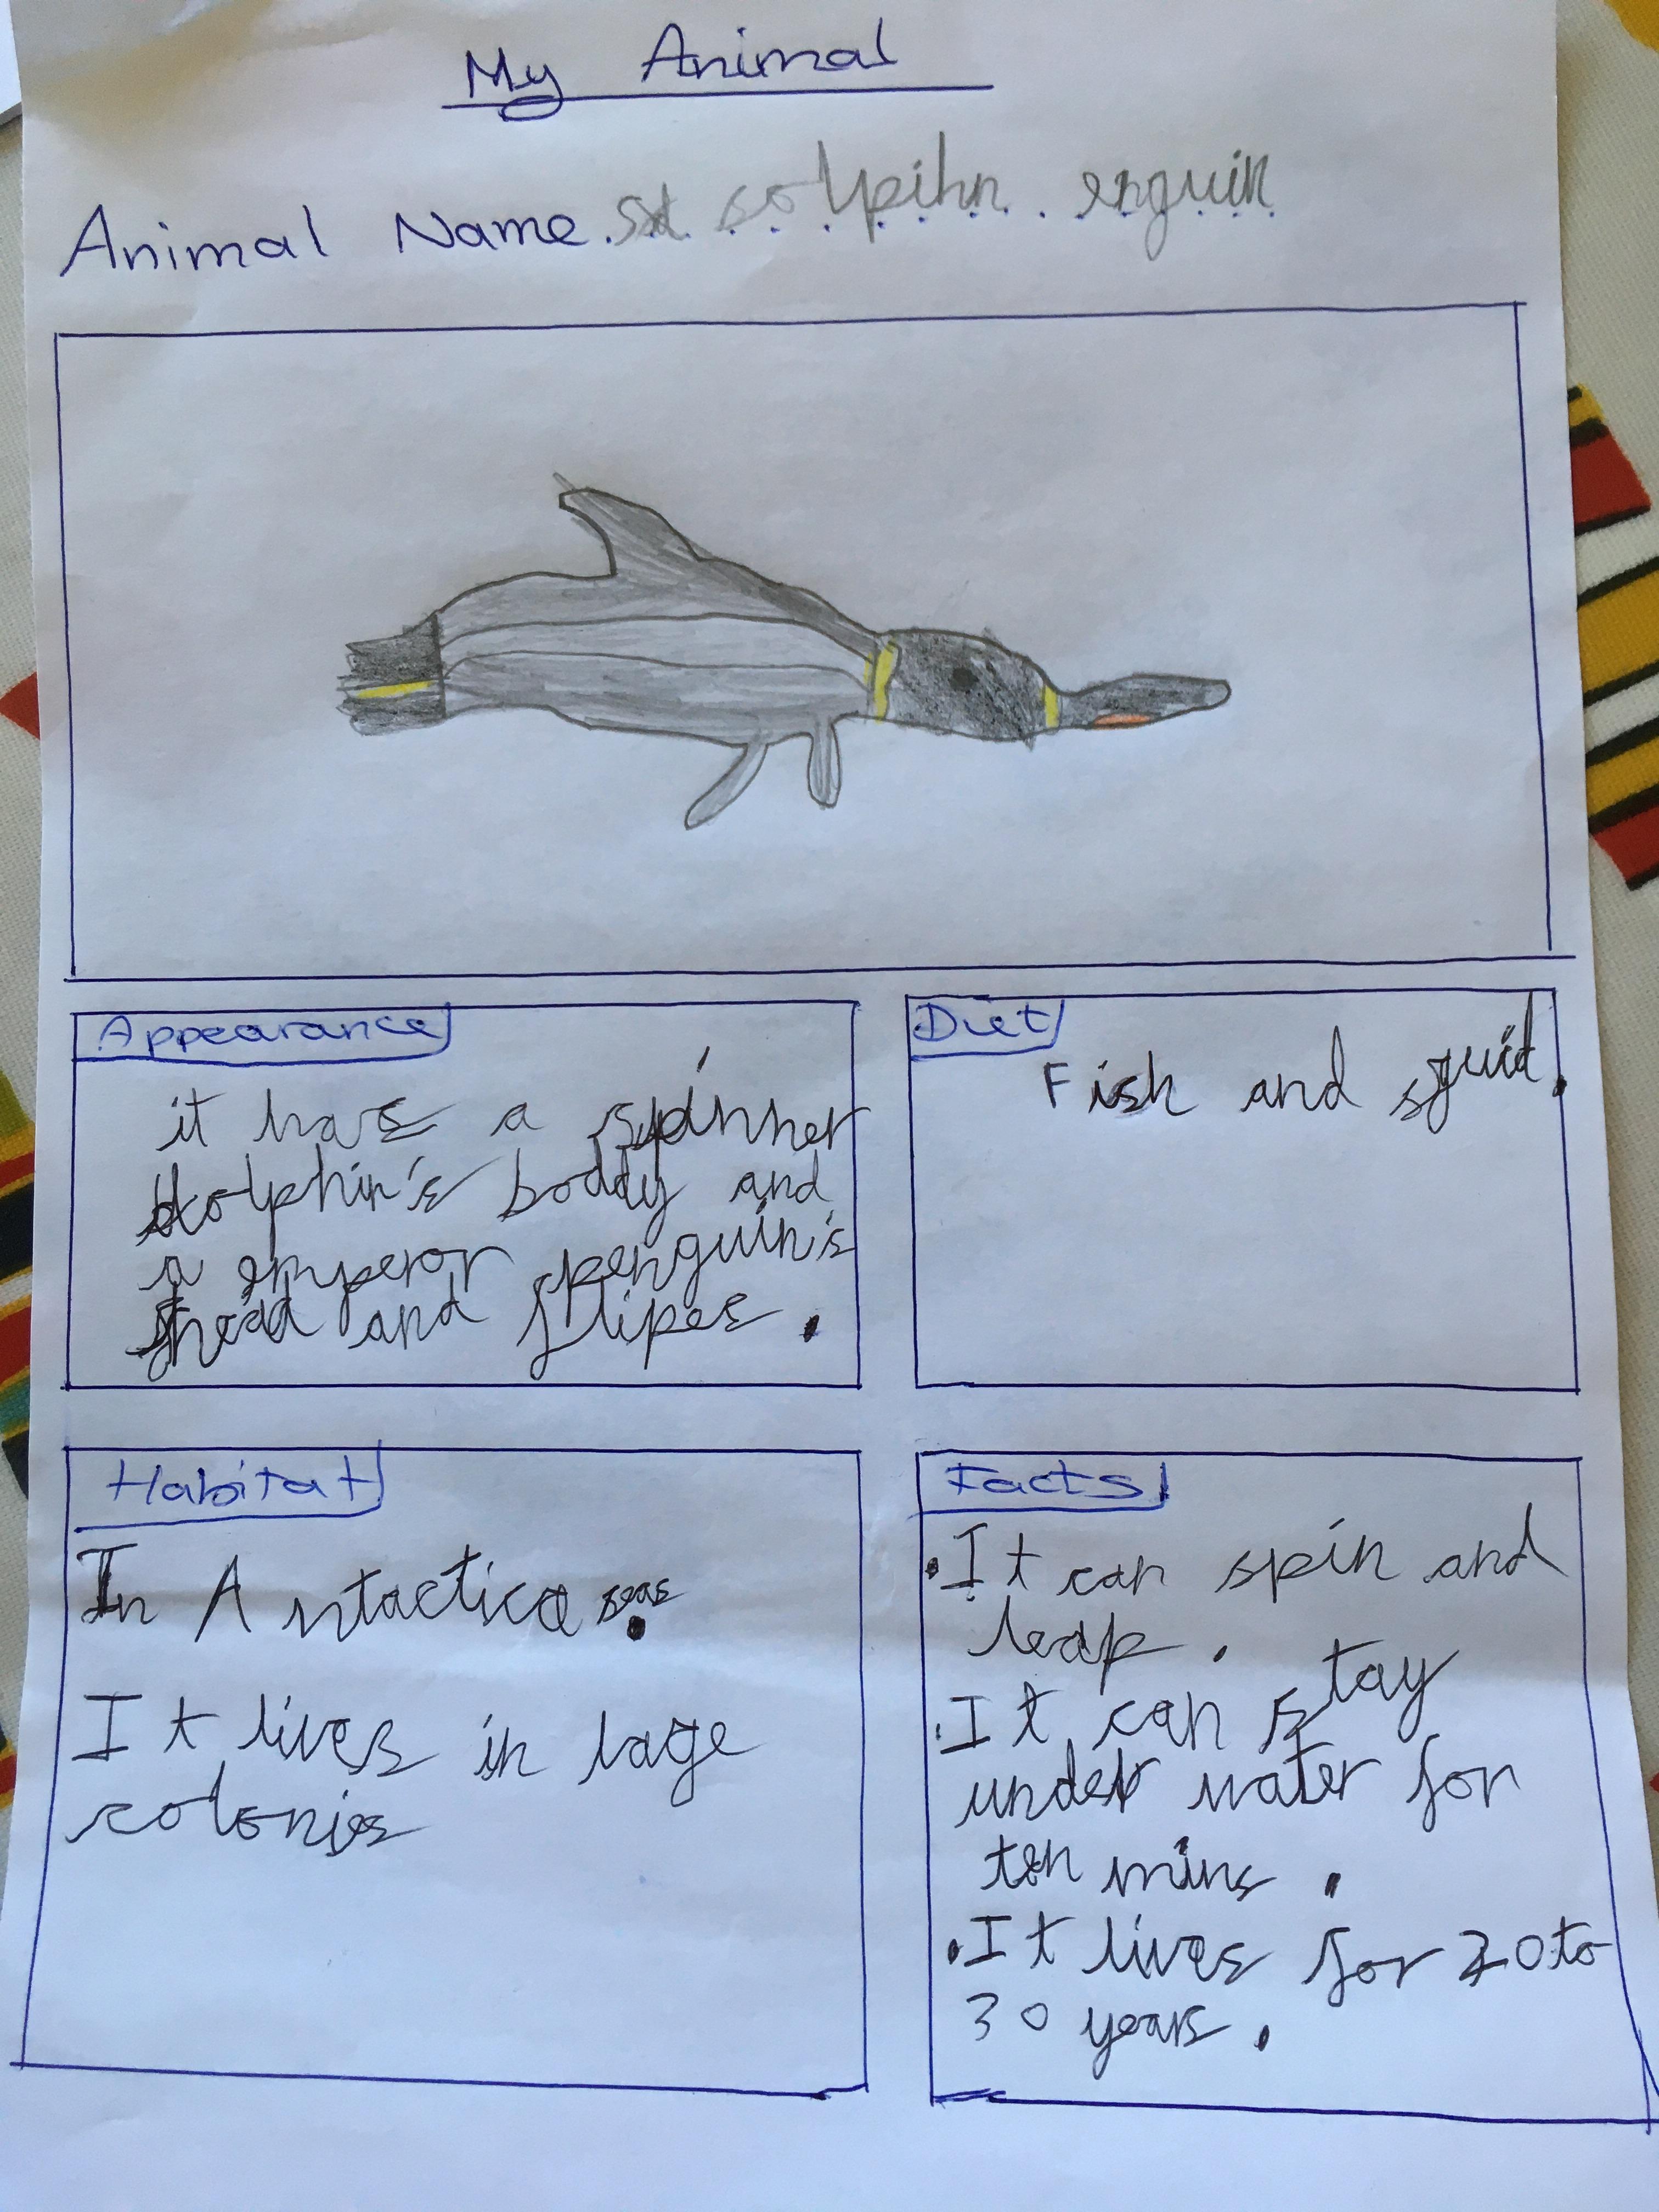 My Animal
Animal Name. solpihn enguin
Appearance
it has a spinner
dolphin's boddy and
a emperor penguin's
head and flipes.
Diet
Fish and squid.
Habitat
In Antactica seas.
It lives in lage
colonies
Facts
• It can spin and
leap.
• It can stay
under water for
ten mins.
• It lives for 20 to
30 years.